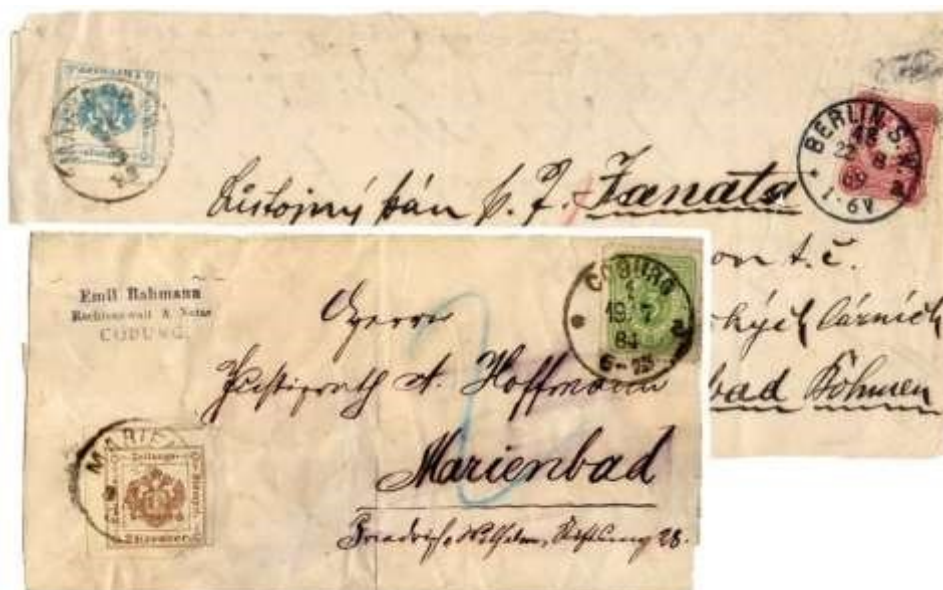 BERLIN S.W.
48
22 8
89
1-6V
Listojný pán
Zanata
on t.č.
kých lázních
bad Böhmen
Emil Rahmann
Rechtsanwalt & Notar
COBURG.
COBURG
19 7
84
Herrn
Justizrath A. Hoffmann
Marienbad
Friedrich Wilhelm, Stiftung 28.
MARIE
Zeitungs-
Stempel
2 Kreuzer